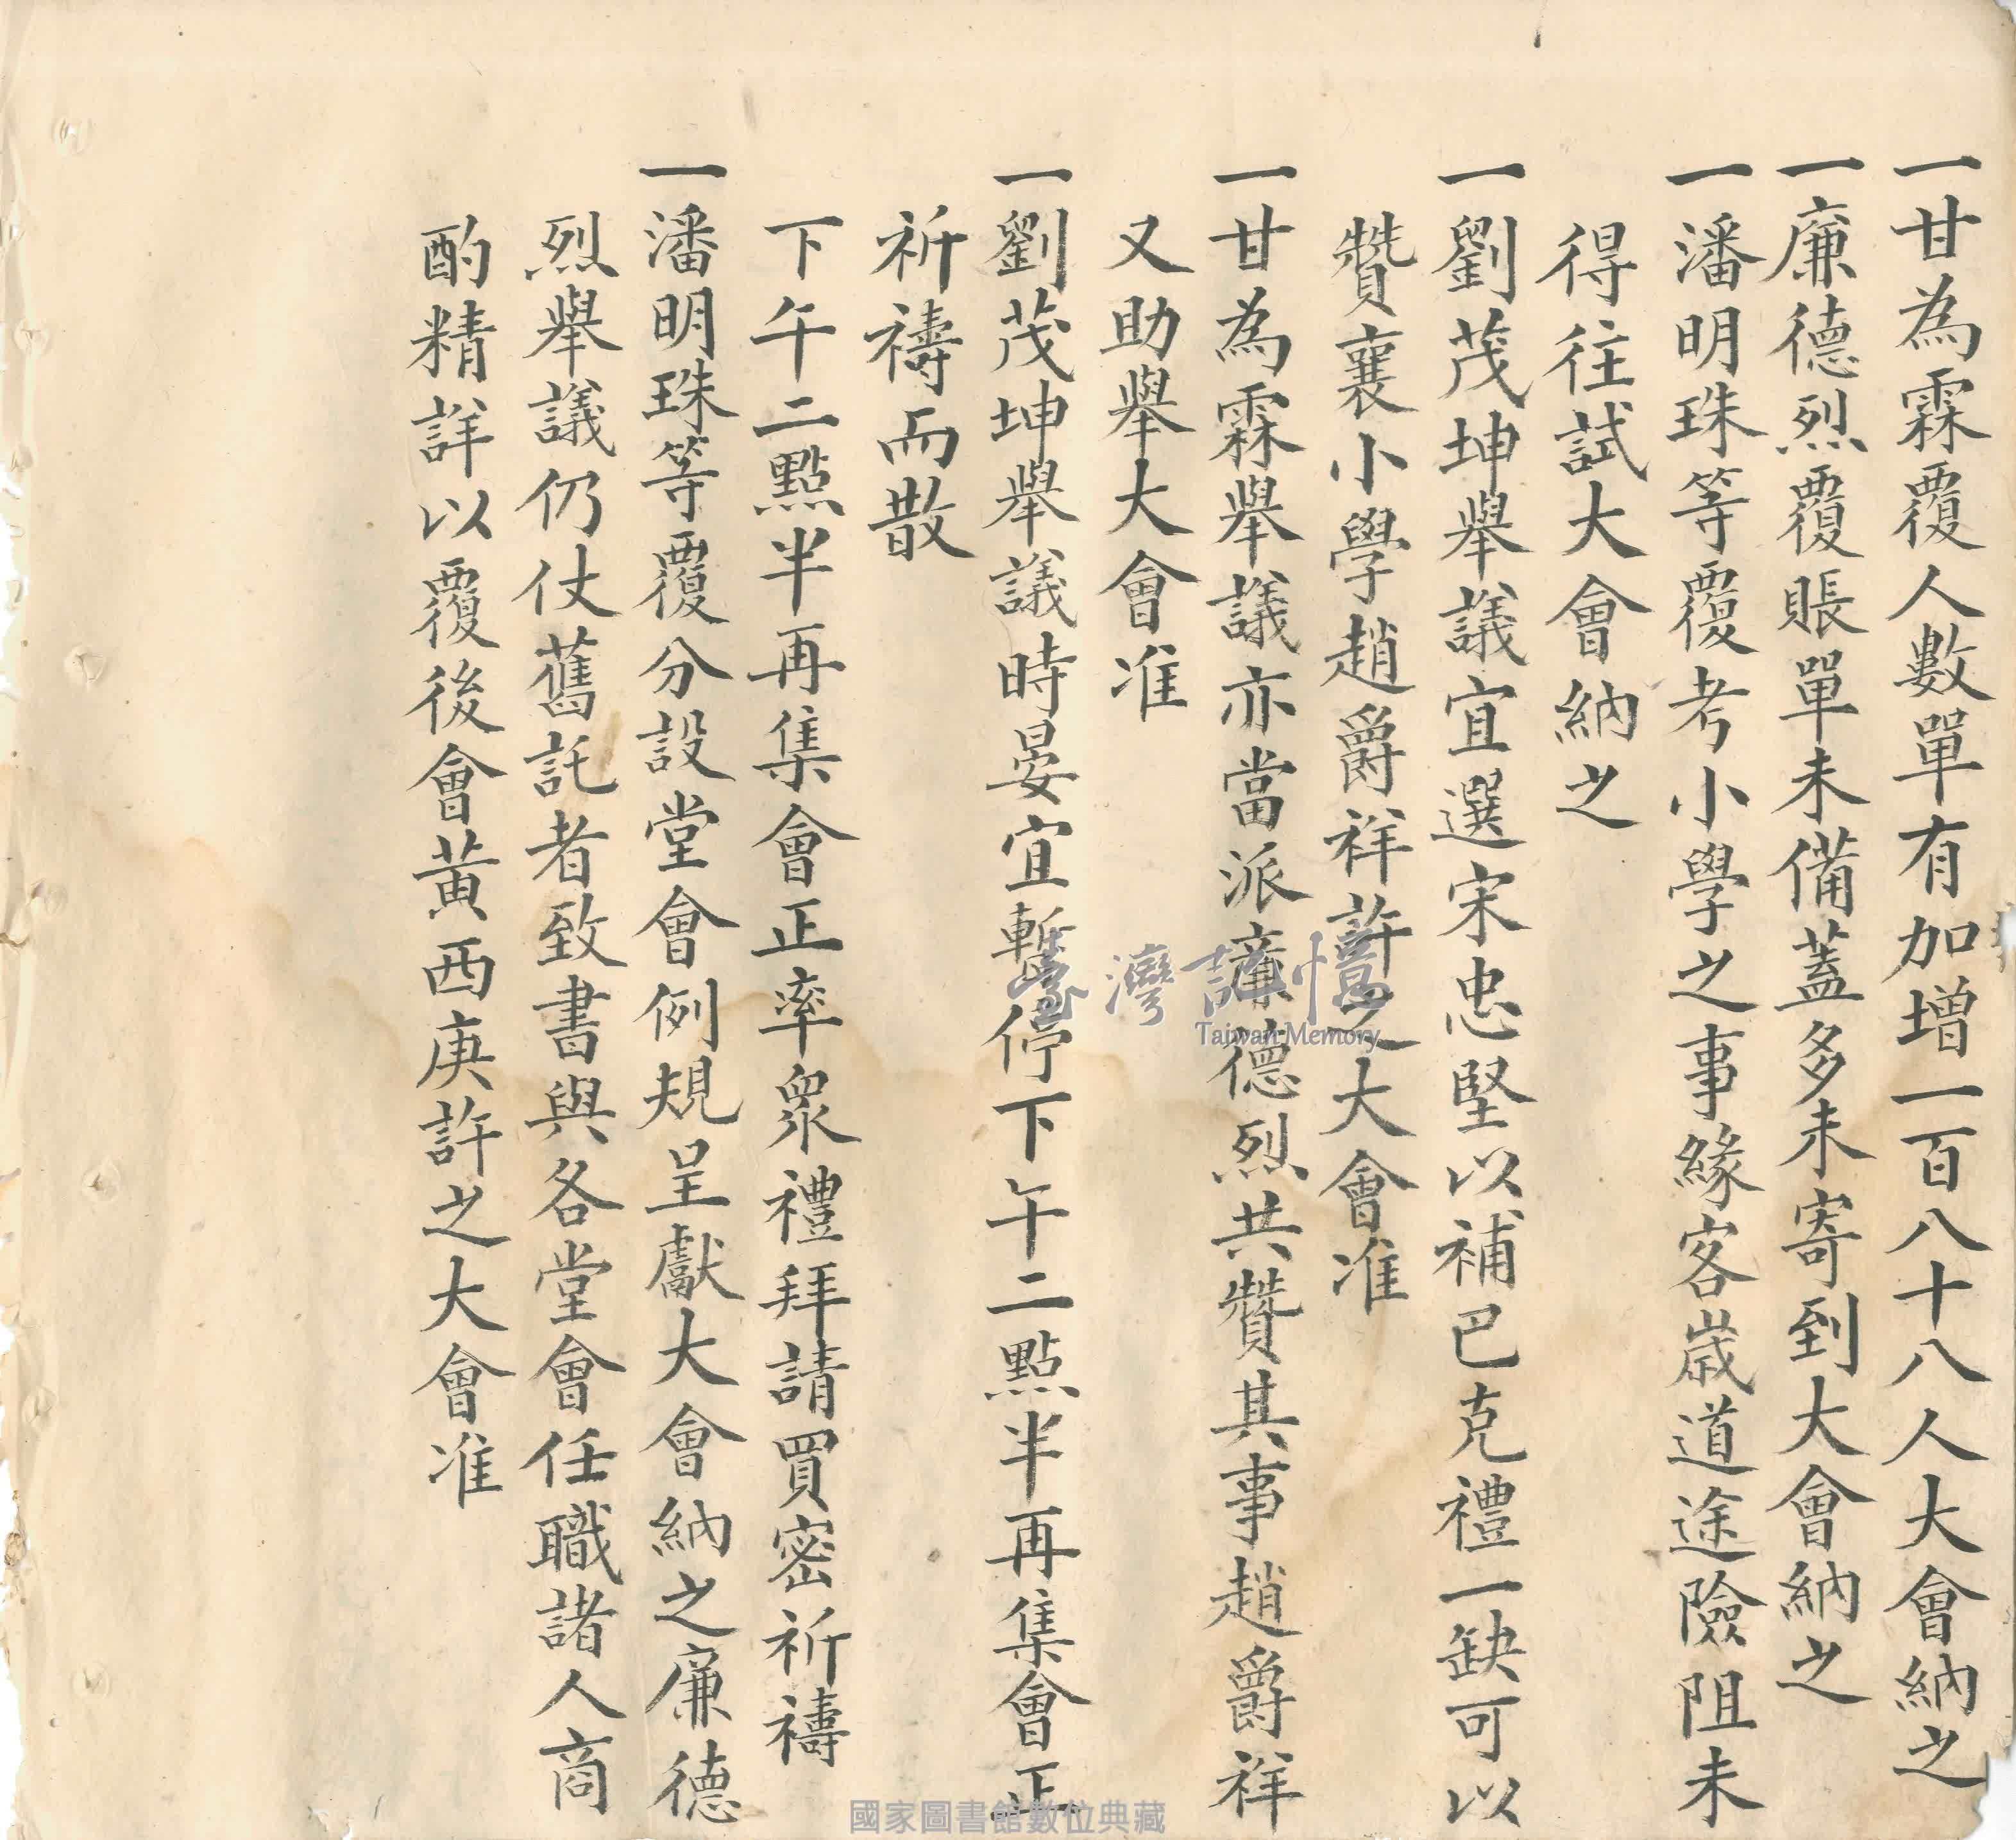 一甘為霖覆人數單有加增一百八十八人大會納之
一廉德烈覆賬單未備蓋多未寄到大會納之
一潘明珠等覆考小學之事緣客歲道途險阻未
得往試大會納之
一劉茂坤舉議宜選宋忠堅以補巴克禮一缺可以
贊襄小學趙爵祥許之大會准
一甘為霖舉議亦當派廉德烈共贊其事趙爵祥
又助舉大會准
一劉茂坤舉議時晏宜暫停下午二點半再集會正
祈禱而散
下午二點半再集會正率眾禮拜請買密祈禱
一潘明珠等覆分設堂會例規呈獻大會納之廉德
烈舉議仍仗舊託者致書與各堂會任職諸人商
酌精詳以覆後會黃西庚許之大會准
臺灣記憶
Taiwan Memory
國家圖書館數位典藏